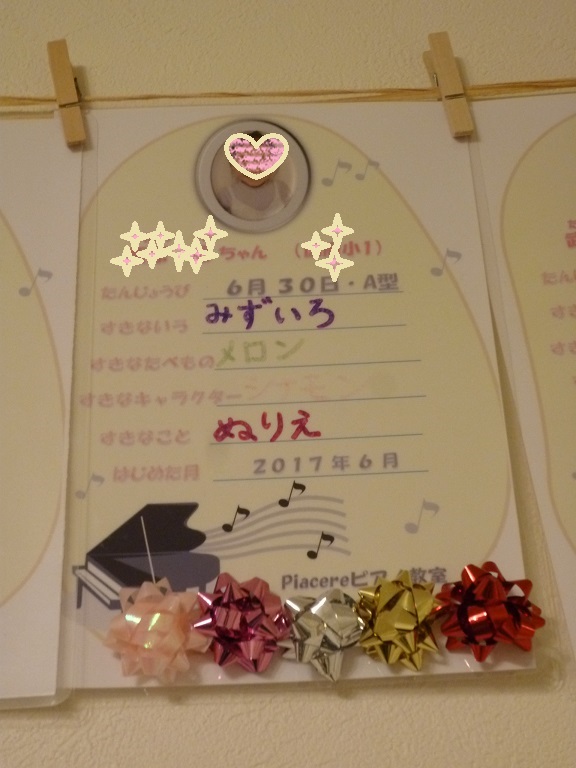 ちゃん （　小1）
たんじょうび 6月30日・A型
すきないろ みずいろ
すきなたべもの メロン
すきなキャラクター シナモン
すきなこと ぬりえ
はじめた月 2017年6月
Piacereピアノ教室